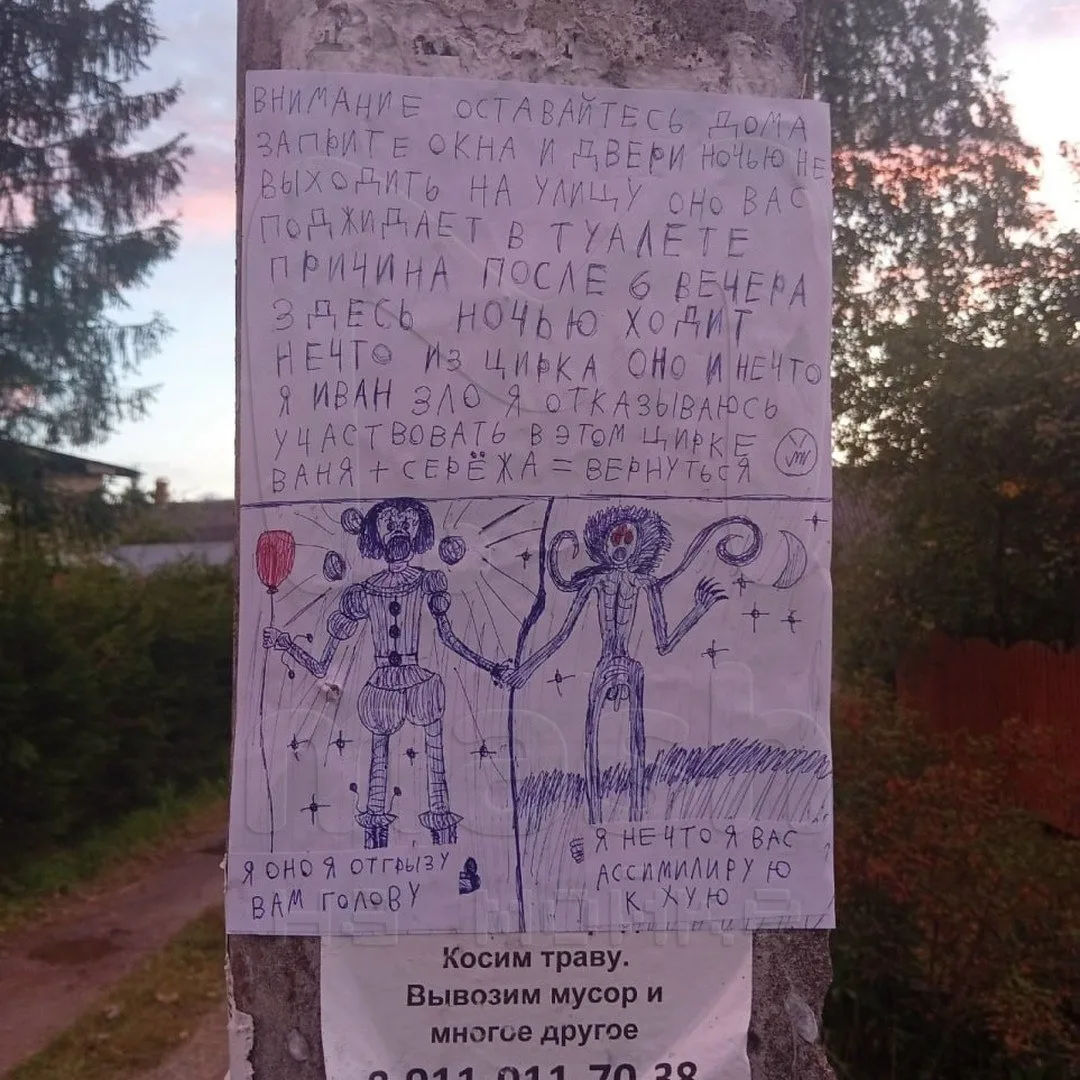 ВНИМАНИЕ ОСТАВАЙТЕСЬ ДОМА
ЗАПРИТЕ ОКНА И ДВЕРИ НОЧЬЮ НЕ
ВЫХОДИТЬ НА УЛИЦУ ОНО ВАС
ПОДЖИДАЕТ В ТУАЛЕТЕ
ПРИЧИНА ПОСЛЕ 6 ВЕЧЕРА
ЗДЕСЬ НОЧЬЮ ХОДИТ
НЕЧТО ИЗ ЦИРКА ОНО И НЕЧТО
Я ИВАН ЗЛО Я ОТКАЗЫВАЮСЬ
УЧАСТВОВАТЬ В ЭТОМ ЦИРКЕ
ВАНЯ + СЕРЁЖА = ВЕРНУТЬСЯ
Я ОНО Я ОТГРЫЗУ
ВАМ ГОЛОВУ
Я НЕЧТО Я ВАС
АССИМИЛИРУЮ
К ХУЮ
mash
на мойка
Косим траву.
Вывозим мусор и
многое другое
8 911 911 70 38